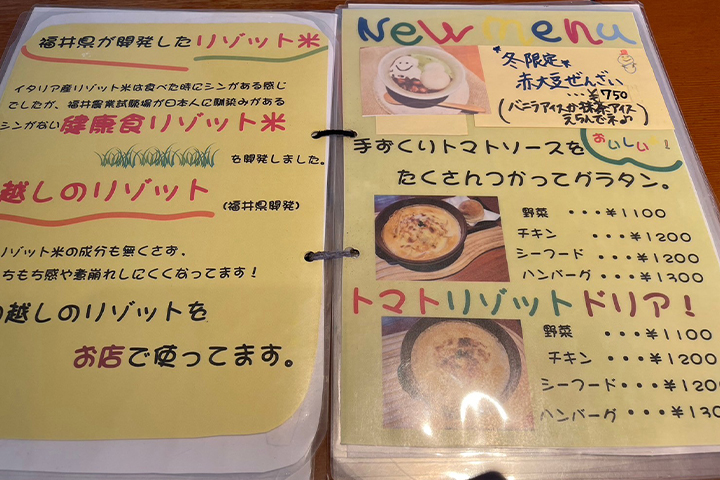 福井県が開発したリゾット米
イタリア産リゾット米は食べた時にシンがある感じ
でしたが、福井農業試験場が日本人に馴染みがある
シンがない健康食リゾット米
を開発しました。
越しのリゾット
(福井県開発)
リゾット米の成分も無くさず、
ちもち感や煮崩れしにくくなってます!
の越しのリゾットを
お店で使ってます。
New menu
冬限定
赤大豆ぜんざい
・・・¥750
(バニラアイスか抹茶アイス
えらんで下さい)
手づくりトマトソースを おいしい!
たくさんつかってグラタン。
野菜 ・・・¥1100
チキン ・・・¥1200
シーフード・・・¥1200
ハンバーグ・・・¥1300
トマトリゾットドリア!
野菜 ・・・¥1100
チキン ・・・¥1200
シーフード・・・¥120
ハンバーグ・・・¥130